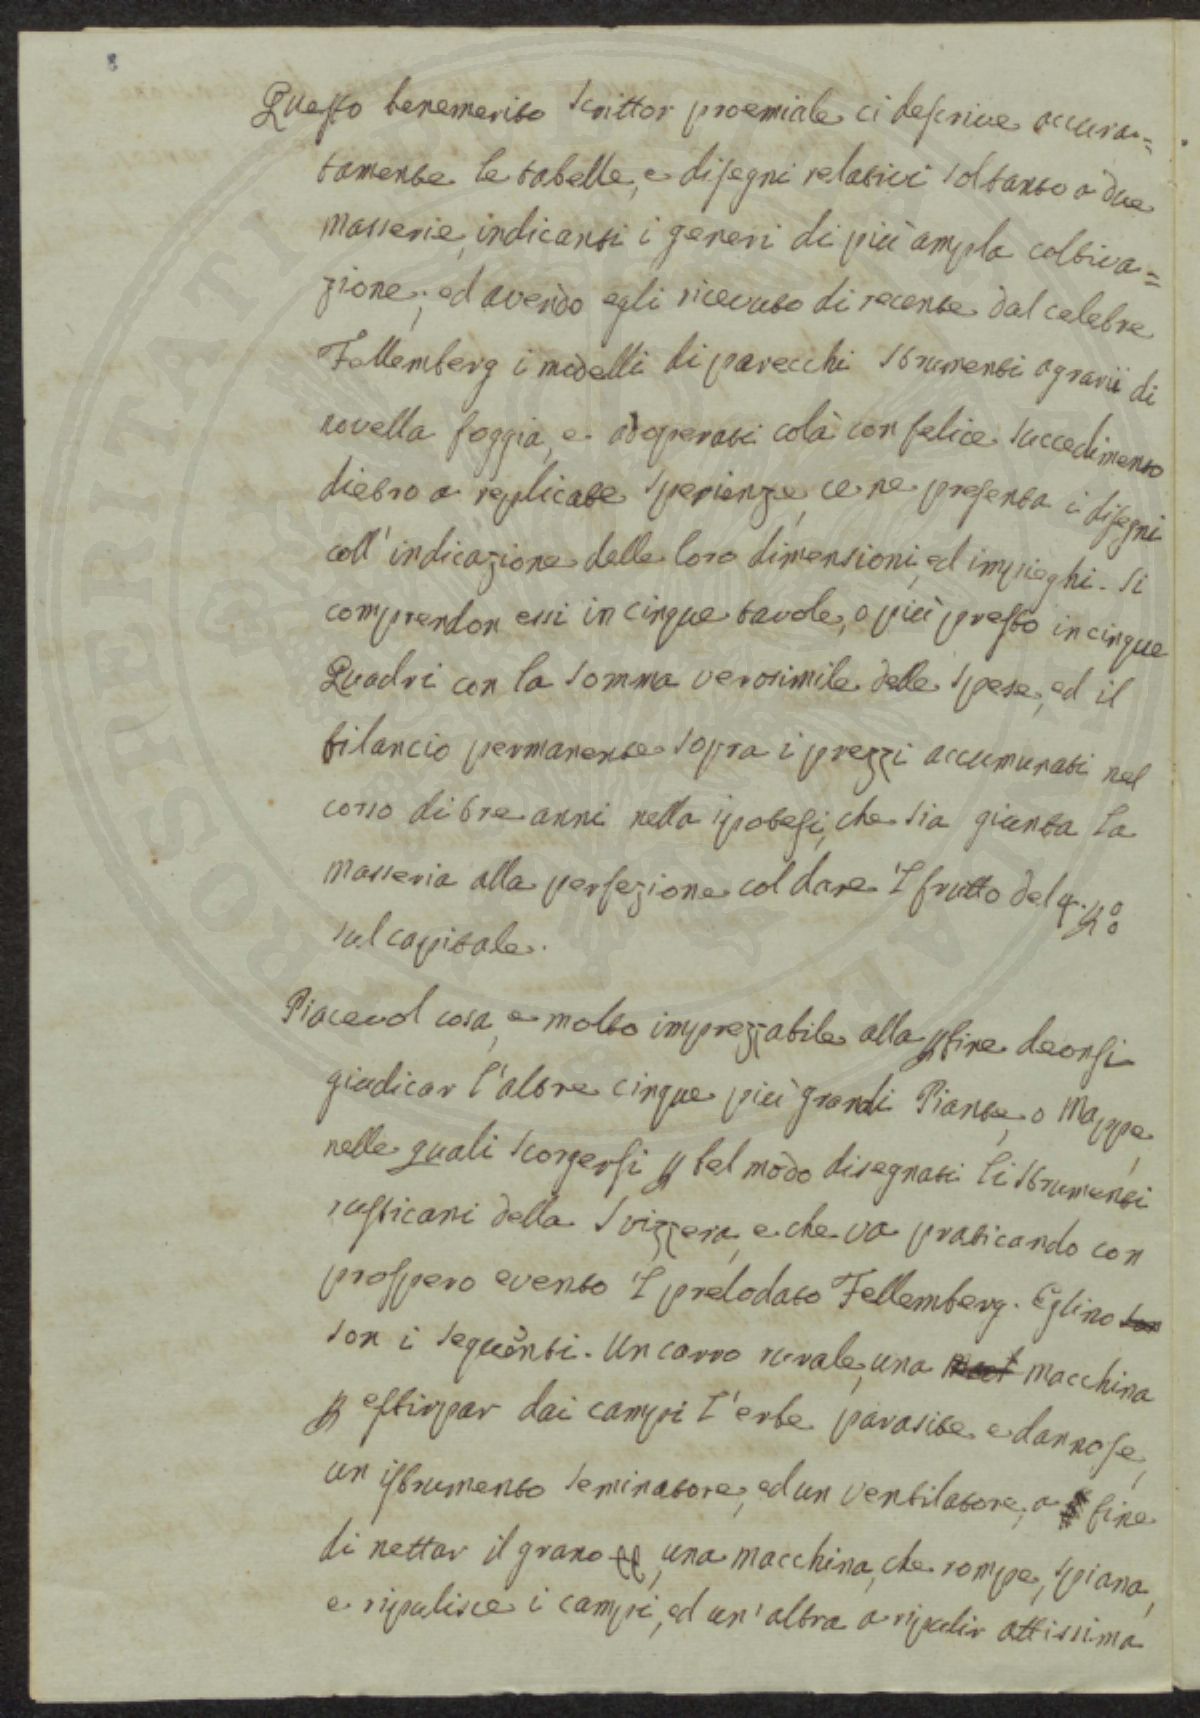 8
Questo benemerito Scrittor proemiale ci descrive accura=
tamente le tabelle, e disegni relativi soltanto a due
masserie, indicanti i generi di più ampla coltiva=
zione; ed avendo egli ricevuto di recente dal celebre
Fellemberg i modelli di parecchi strumenti agrarii di
novella foggia, e adoperati colà con felice succedimento
dietro a replicate sperienze, ce ne presenta i disegni
coll'indicazione delle loro dimensioni, ed impieghi. Si
comprendon essi in cinque tavole, o più presto in cinque
Quadri con la somma verosimile delle spese, ed il
bilancio permanente sopra i prezzi accumunati nel
corso di tre anni nella ipotesi, che sia giunta la
masseria alla perfezione col dare 'l frutto del 4.
sul capitale.
Piacevol cosa, e molto imprezzabile alla fine deonsi
giudicar l'altre cinque più grandi Piante, o Mappe,
nelle quali scorgersi p bel modo disegnati li strumenti
rusticani della Svizzera, e che va praticando con
prospero evento 'l prelodato Fellemberg. Eglino son
son i seguenti. Un carro rurale, una macchina
p estirpar dai campi l'erbe parasite e dannose,
un istrumento seminatore, ed un ventilatore, a fine
di nettar il grano, una macchina, che rompe, spiana,
e ripulisce i campi, ed un'altra a ripulir attissima
PROSPERITATI